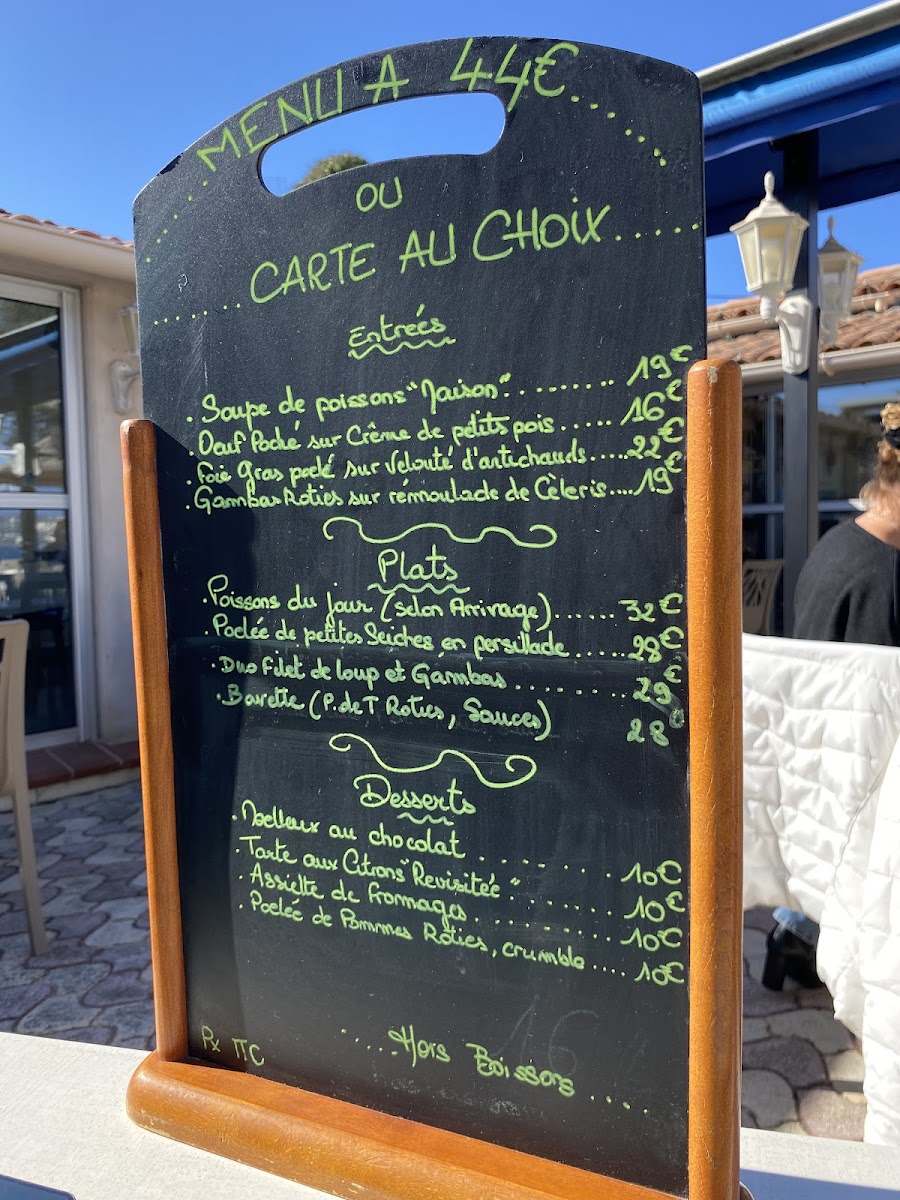 MENU A 44€......
OU
CARTE AU CHOIX......
Entrées
. Soupe de poissons "Maison"......... 19€
. Oeuf Poché sur Crème de petits pois..... 16€
. Foie gras poélé sur Velouté d'artichauds.... 22€
. Gambas Roties sur rémoulade de Cèleris.... 19€
Plats
. Poissons du jour (selon Arrivage)...... 32€
. Poélée de petites Seiches en persillade..... 28€
. Duo filet de loup et Gambas........ 29€
. Bavette (P. de T Roties, Sauces) 28€
Desserts
. Moelleux au chocolat......... 10€
. Tarte aux Citrons "Revisitée"........ 10€
. Assiette de Fromages......... 10€
. Poelée de Pommes Roties, crumble.... 10€
Px TTC
.....Hors Boissons.....